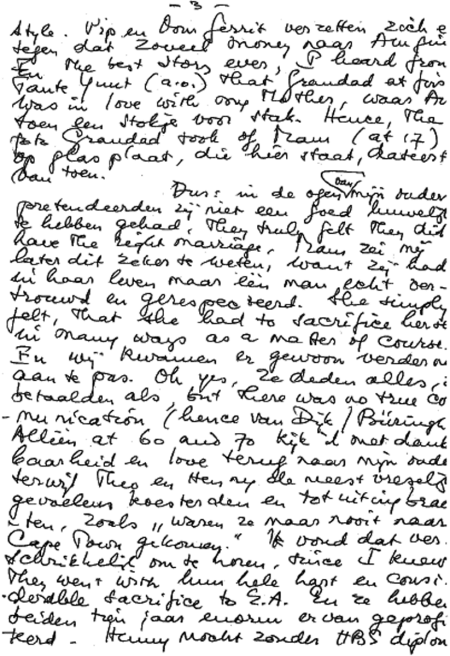 - 3 -
style. Pip en Oom Gerrit verzetten zich e
tegen dat zoveel money naar
En the best story ever, I heard from
Tante (a.o.) that Grandad at firs
was in love with my Mother, waar
toen een stokje voor stak. Hence, the
foto Grandad took of Mam (at 17)
op glasplaat, die hier staat, dateert
van toen.
Dus: in de ogen van mijn ouder
pretendeerden zij niet een goed huwelijk
te hebben gehad. They truly felt they did
have the right marriage. Mam zei mij
later dit zeker te weten, want zij had
in haar leven maar één man echt ver-
trouwd en gerespecteerd. She simply
felt, that she had to sacrifice herse
in many ways as a matter of course.
En wij kwamen er gewoon verder
aan te pas. Oh yes, ze deden alles,
betaalden als, but there was no true co
-munication (hence van Dijk / Büringh
Alléén at 60 and 70 kijk ik met dank
baarheid en love terug naar mijn oude
terwijl Theo en Henny de meest vreselijk
gevoelens koesterden en tot uiting brac
-ten, zoals „waren ze maar nooit naar
Cape Town gekomen." Ik vond dat ver-
schrikkelijk om te horen, since I knew
They went with hun hele hart en consi-
-derable sacrifice to S.A. En ze hebbe
beiden tien jaar enorm ervan geprofi
-teerd - Henny mocht zonder HBS diplom